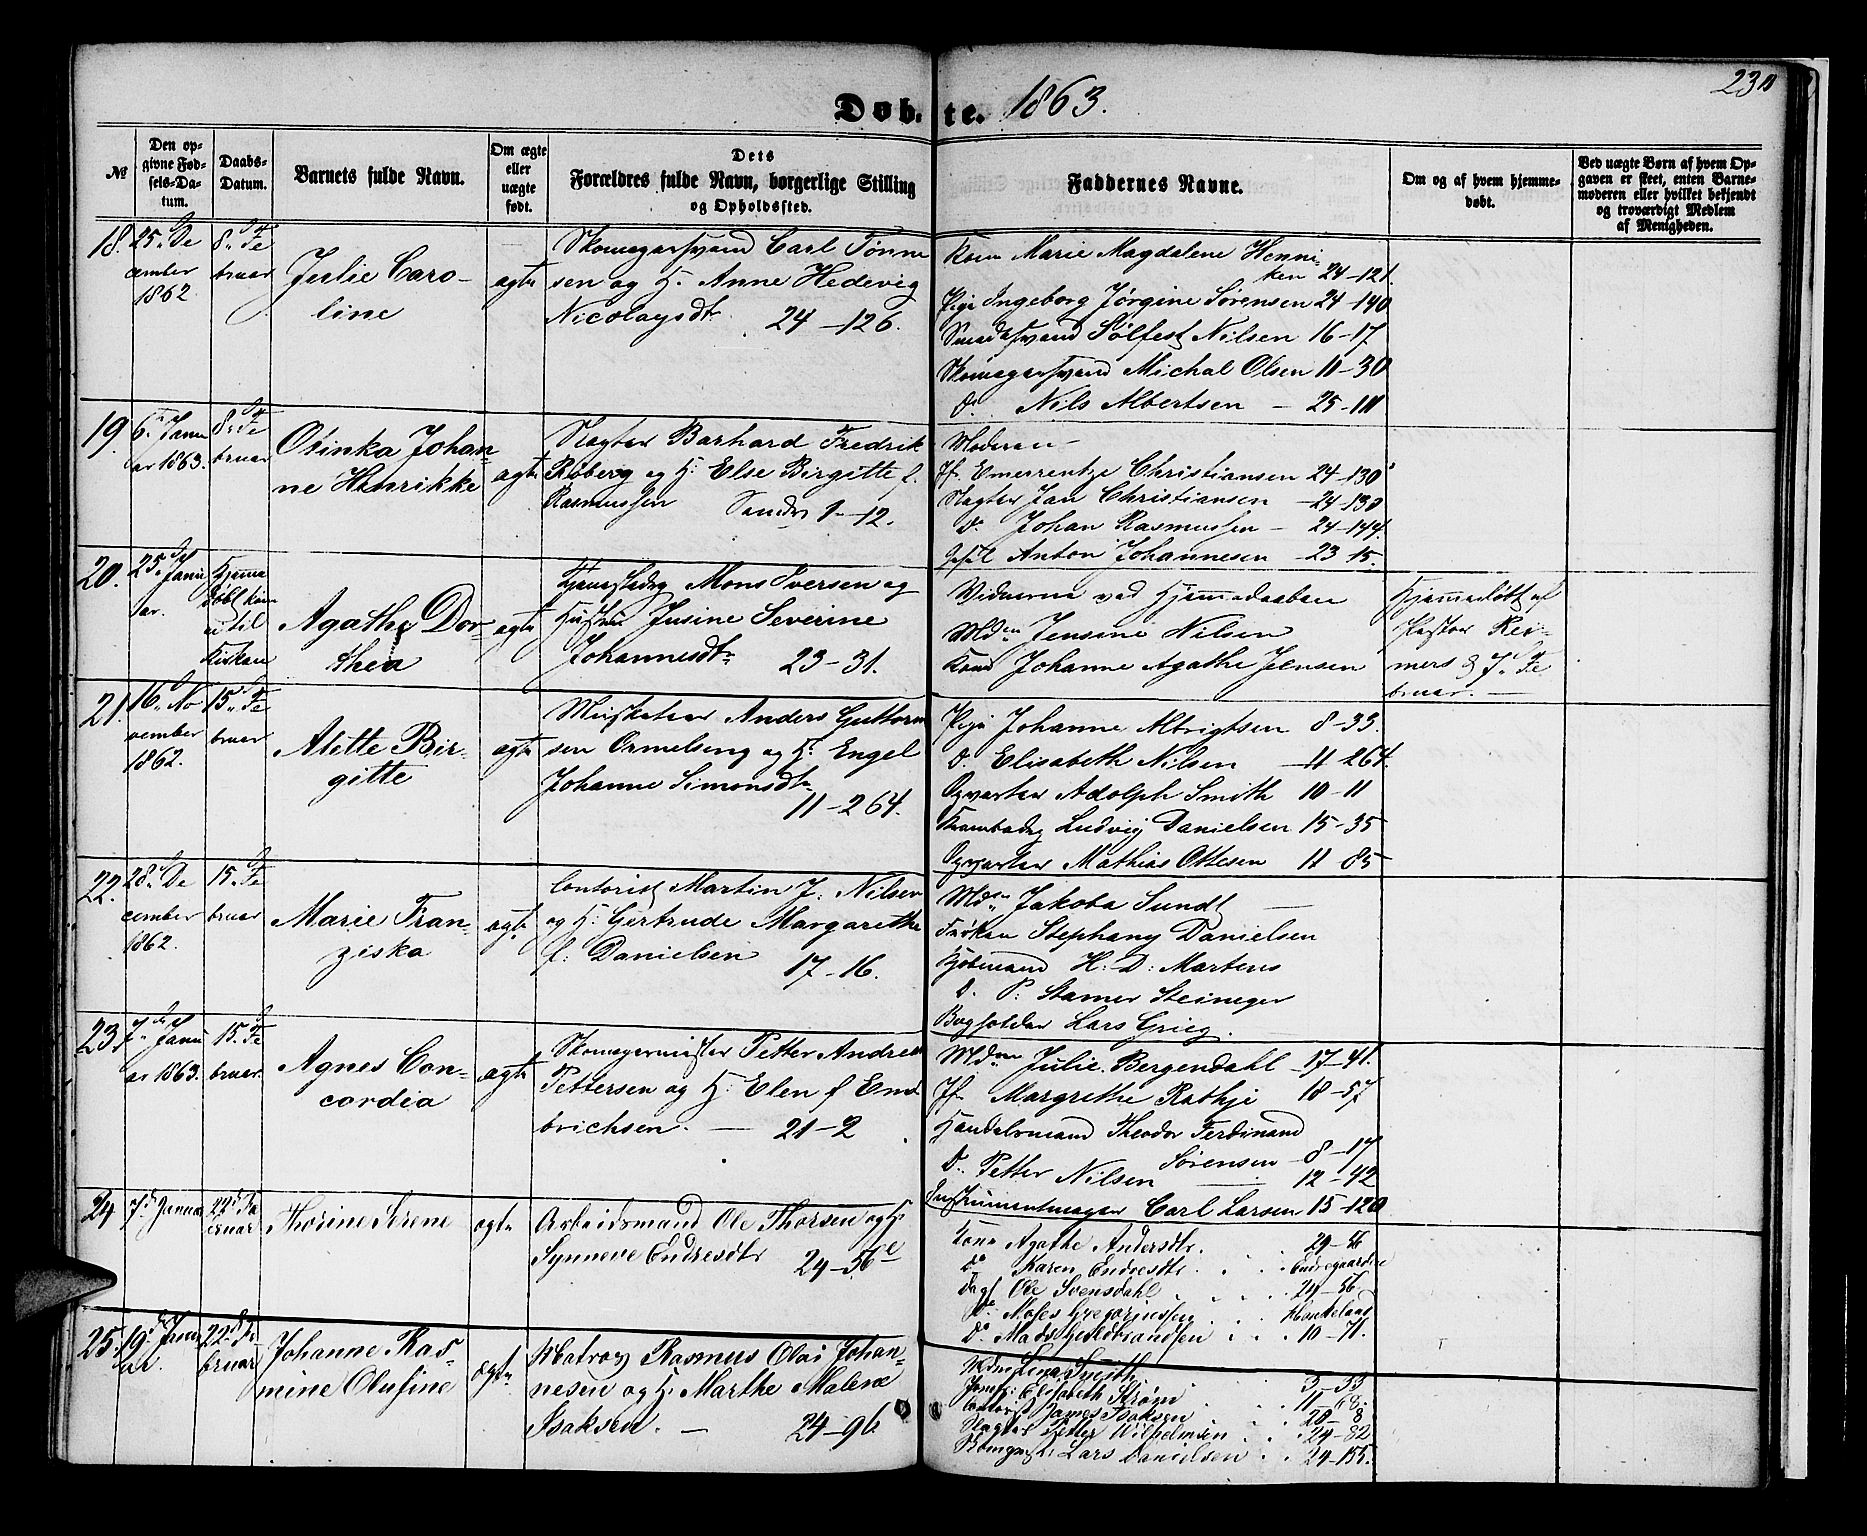 23
Døbte. 1863.
№
Den opgivne Fødsels-Datum.
Daabs-Datum.
Barnets fulde Navn.
Om ægte eller uægte født.
Dets Forældres fulde Navn, borgerlige Stilling og Opholdssted.
Faddernes Navne.
Om og af hvem hjemmedøbt.
Ved uægte Børn af hvem Opgaven er skeet, enten Barnemoderen eller hvilket bekjendt og troværdigt Medlem af Menigheden.
18. 25de De
cember
1862.
8de Fe
bruar
Julie Caro-
line
ægte
Skomagersvend Carl Tønne
sen og H. Anne Hedevig
Nicolaysdtr. 24-126.
Kone Marie Magdalene Henni-
ken 24-121.
Pige Ingeborg Jørgine Sørensen 24-140
Smedesvend Sølfest Nilsen 16-17
Skomagersvend Michal Olsen 11-30
do. Nils Albertsen - 25-
19. 6te Janu
ar 1863.
8de Fe
bruar
Otinka Johan-
ne Henrikke
ægte
Slagter Barhard Fredrik
Roberg og H. Else Birgitte f.
Rasmussen Sandv 1-12.
Moderen -
Jf. Emerentze Christiansen 24-130
Slagter Jan Christiansen -24-130
do. Johan Rasmussen - 24-144.
Anton Johannesen - 23-15.
20. 25de Janu
ar.
Hjemme
døbt kom
til
Kirken
Agathe Dor-
thea
ægte
Mons Iversen og
Hustru Jusine Severine
Johannesdtr. 23-31.
Vidnerne ved Hjemmedaaben
Mdm Jensine Nilsen
Kone Johanne Agathe Jensen
Hjemmedøbt af
Pastor Rei-
mers d. 7. Fe
bruar. -
21. 16de No
vember
1862.
15de Fe
bruar
Alette Bir-
gitte
ægte
Musketeer Anders Guttorm
sen Ormelseng og H. Engel
Johanne Simonsdtr
11-264.
Pige Johanne Albrigtsen 8-33.
do. Elisabeth Nilsen -11-264.
Opvarter Adolph Smith 10-11
Krambodsv Ludvig Danielsen 15-35
Opvarter Mathias Ottesen 11 85
22. 28de De
cember
1862.
15de Fe
bruar
Marie Fran-
ziska
ægte
Contorist Martin J. Nilsen
og H. Gertrude Margarethe
f. Danielsen 17-16.
Mdm Jakoba Sundt -
Frøken Stephany Danielsen
Kjøbmand H. D. Martens
do. P. Stamer Steineger
Bogholder Lars Grieg.
23. 7de Janu
ar 1863.
15de Fe
bruar.
Agnes Con-
cordia
ægte
Skomagermester Petter Andreas
Pettersen og H. Elen f. Emd
brichsen. - 21-2
Mdm Julie Bergendahl -17-41.
Jf. Margrethe Rathje 18-57
Handelsmand Theodor Ferdinand
Sørensen - 8-17
do. Petter Nilsen - 12-42
Instrumentmager Carl Larsen 15-120
24 7de Januar
22de Fe
bruar
Thorine Serene
ægte
Arbeidsmand Ole Thorsen og H.
Synneve Endresdtr 24-56e
Kone Agathe Andersdtr. 29-
do Karen Endresdtr. Endregaarden
Dagl Ole Svensdahl. 24-56
do. Moses Gregoriussen Haukeland
do. Mads Hildbrandsen 10-71.
25. 19de Janu
ar.
22de Fe
bruar
Johanne Ras-
mine Olufine
ægte
Matros Rasmus Olai Johan-
nesen og H. Marthe Malene
Isaksen. - 24-96
Lena Smith 3-33
Jomfr. Elisabeth Strøm 11-68.
Contorist James Isaksen 28-8
Slagter Petter Wilhelmsen 24-82
Lars Danielsen 24-155.